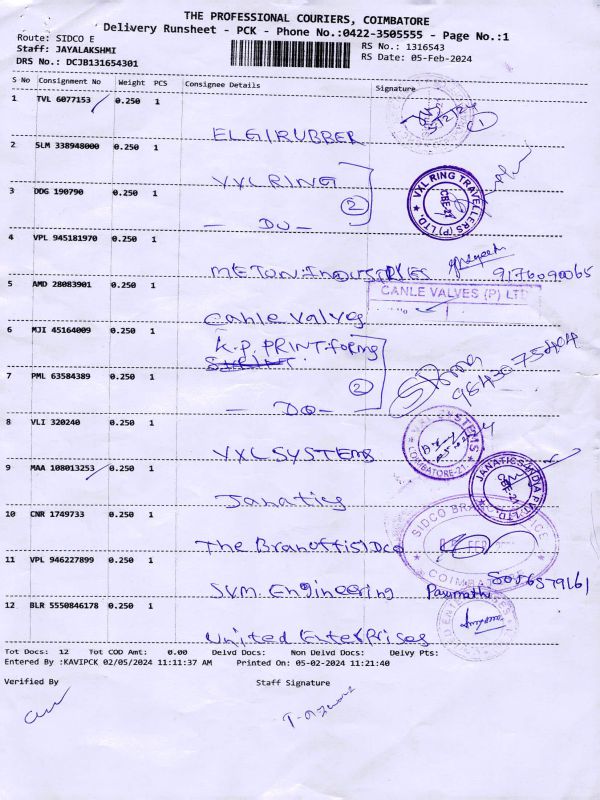 THE PROFESSIONAL COURIERS, COIMBATORE
Delivery Runsheet - PCK - Phone No.:0422-3505555 - Page No.:1
Route: SIDCO E
RS No.: 1316543
Staff: JAYALAKSHMI
RS Date: 05-Feb-2024
DRS No.: DCJB131654301
S No Consignment No Weight PCS Consignee Details Signature
1 TVL 6077153 0.250 1
5/2/24
1
ELGIRUBBER
2 SLM 338948000 0.250 1
VXLRING
VXL RING TRAVELLERS (P) LTD.
CBE-21
3 DDG 190790 0.250 1
2
- DO -
4 VPL 945181970 0.250 1
METON: INDUSTRIES 9176090065
5 AMD 28083901 0.250 1
CANLE VALVES (P) LTD
Canle Valves
6 MJI 45164009 0.250 1
K.P. PRINT forms
7 PML 63584389 0.250 1
2
- DO -
8 VLI 320240 0.250 1
VXLSYSTEMS
COIMBATORE-21.
9 MAA 108013253 0.250 1
JANATICS INDIA P LTD.
Janatics
10 CNR 1749733 0.250 1
SIDCO BRANCH OFFICE
FEB
COIMBATORE
The Branoffisidco
11 VPL 946227899 0.250 1
SVM. Engineering
12 BLR 5550846178 0.250 1
United Enterprises
Tot Docs: 12 Tot COD Amt: 0.00 Delvd Docs: Non Delvd Docs: Delvy Pts:
Entered By :KAVIPCK 02/05/2024 11:11:37 AM Printed On: 05-02-2024 11:21:40
Verified By Staff Signature